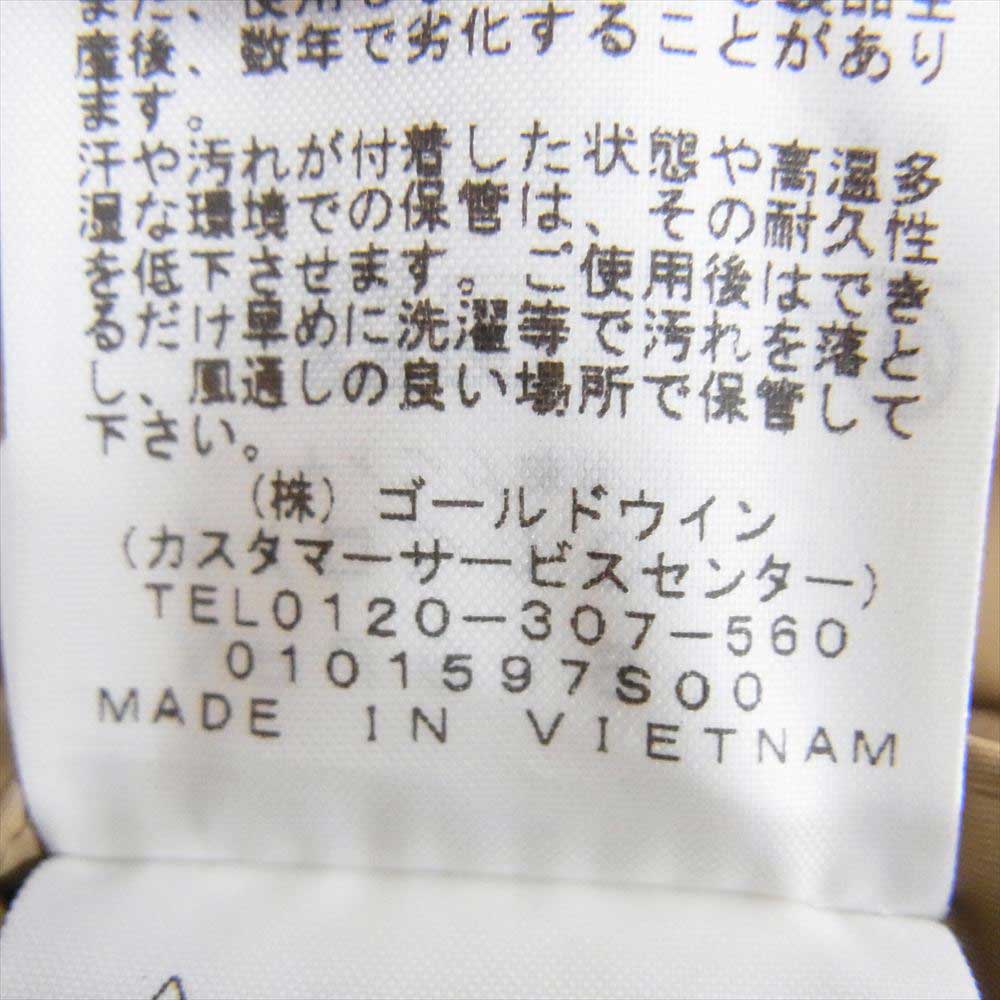 また、使用し
産後、数年で劣化することがあり
ます。
汗や汚れが付着した状態や高温多
湿な環境での保管は、その耐久性
を低下させます。ご使用後はできる
だけ早めに洗濯等で汚れを落とし
、風通しの良い場所で保管して
下さい。
(株) ゴールドウイン
(カスタマーサービスセンター)
TEL0120-307-560
0101597S00
MADE IN VIETNAM